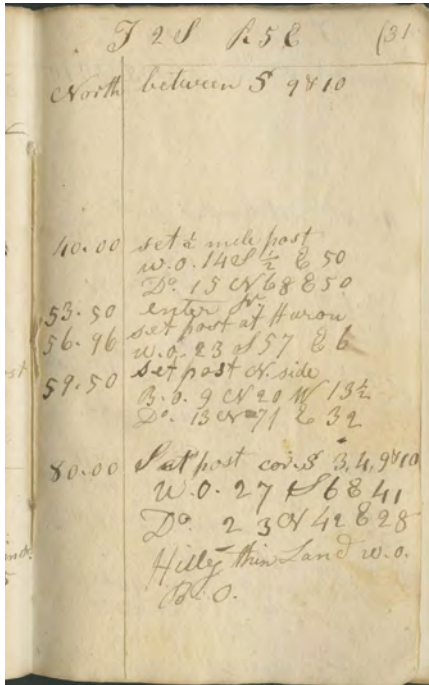 T 2 S R 5 E (31
North between S 9 & 10
40.00 set ½ mile post
W.O. 14 S ½ E 50
Do. 15 N 68 E 50
53.50 enter
56.96 set post at Huron
W.O. 23 S 57 E 6
59.50 set post N. side
B.O. 9 N 20 W 13½
Do. 13 N 71 E 32
80.00 Set post cor. S 3, 4, 9 & 10
W.O. 27 S 6 E 41
Do. 23 N 42 E 28
Hilly thin Land W.O.
B.O.